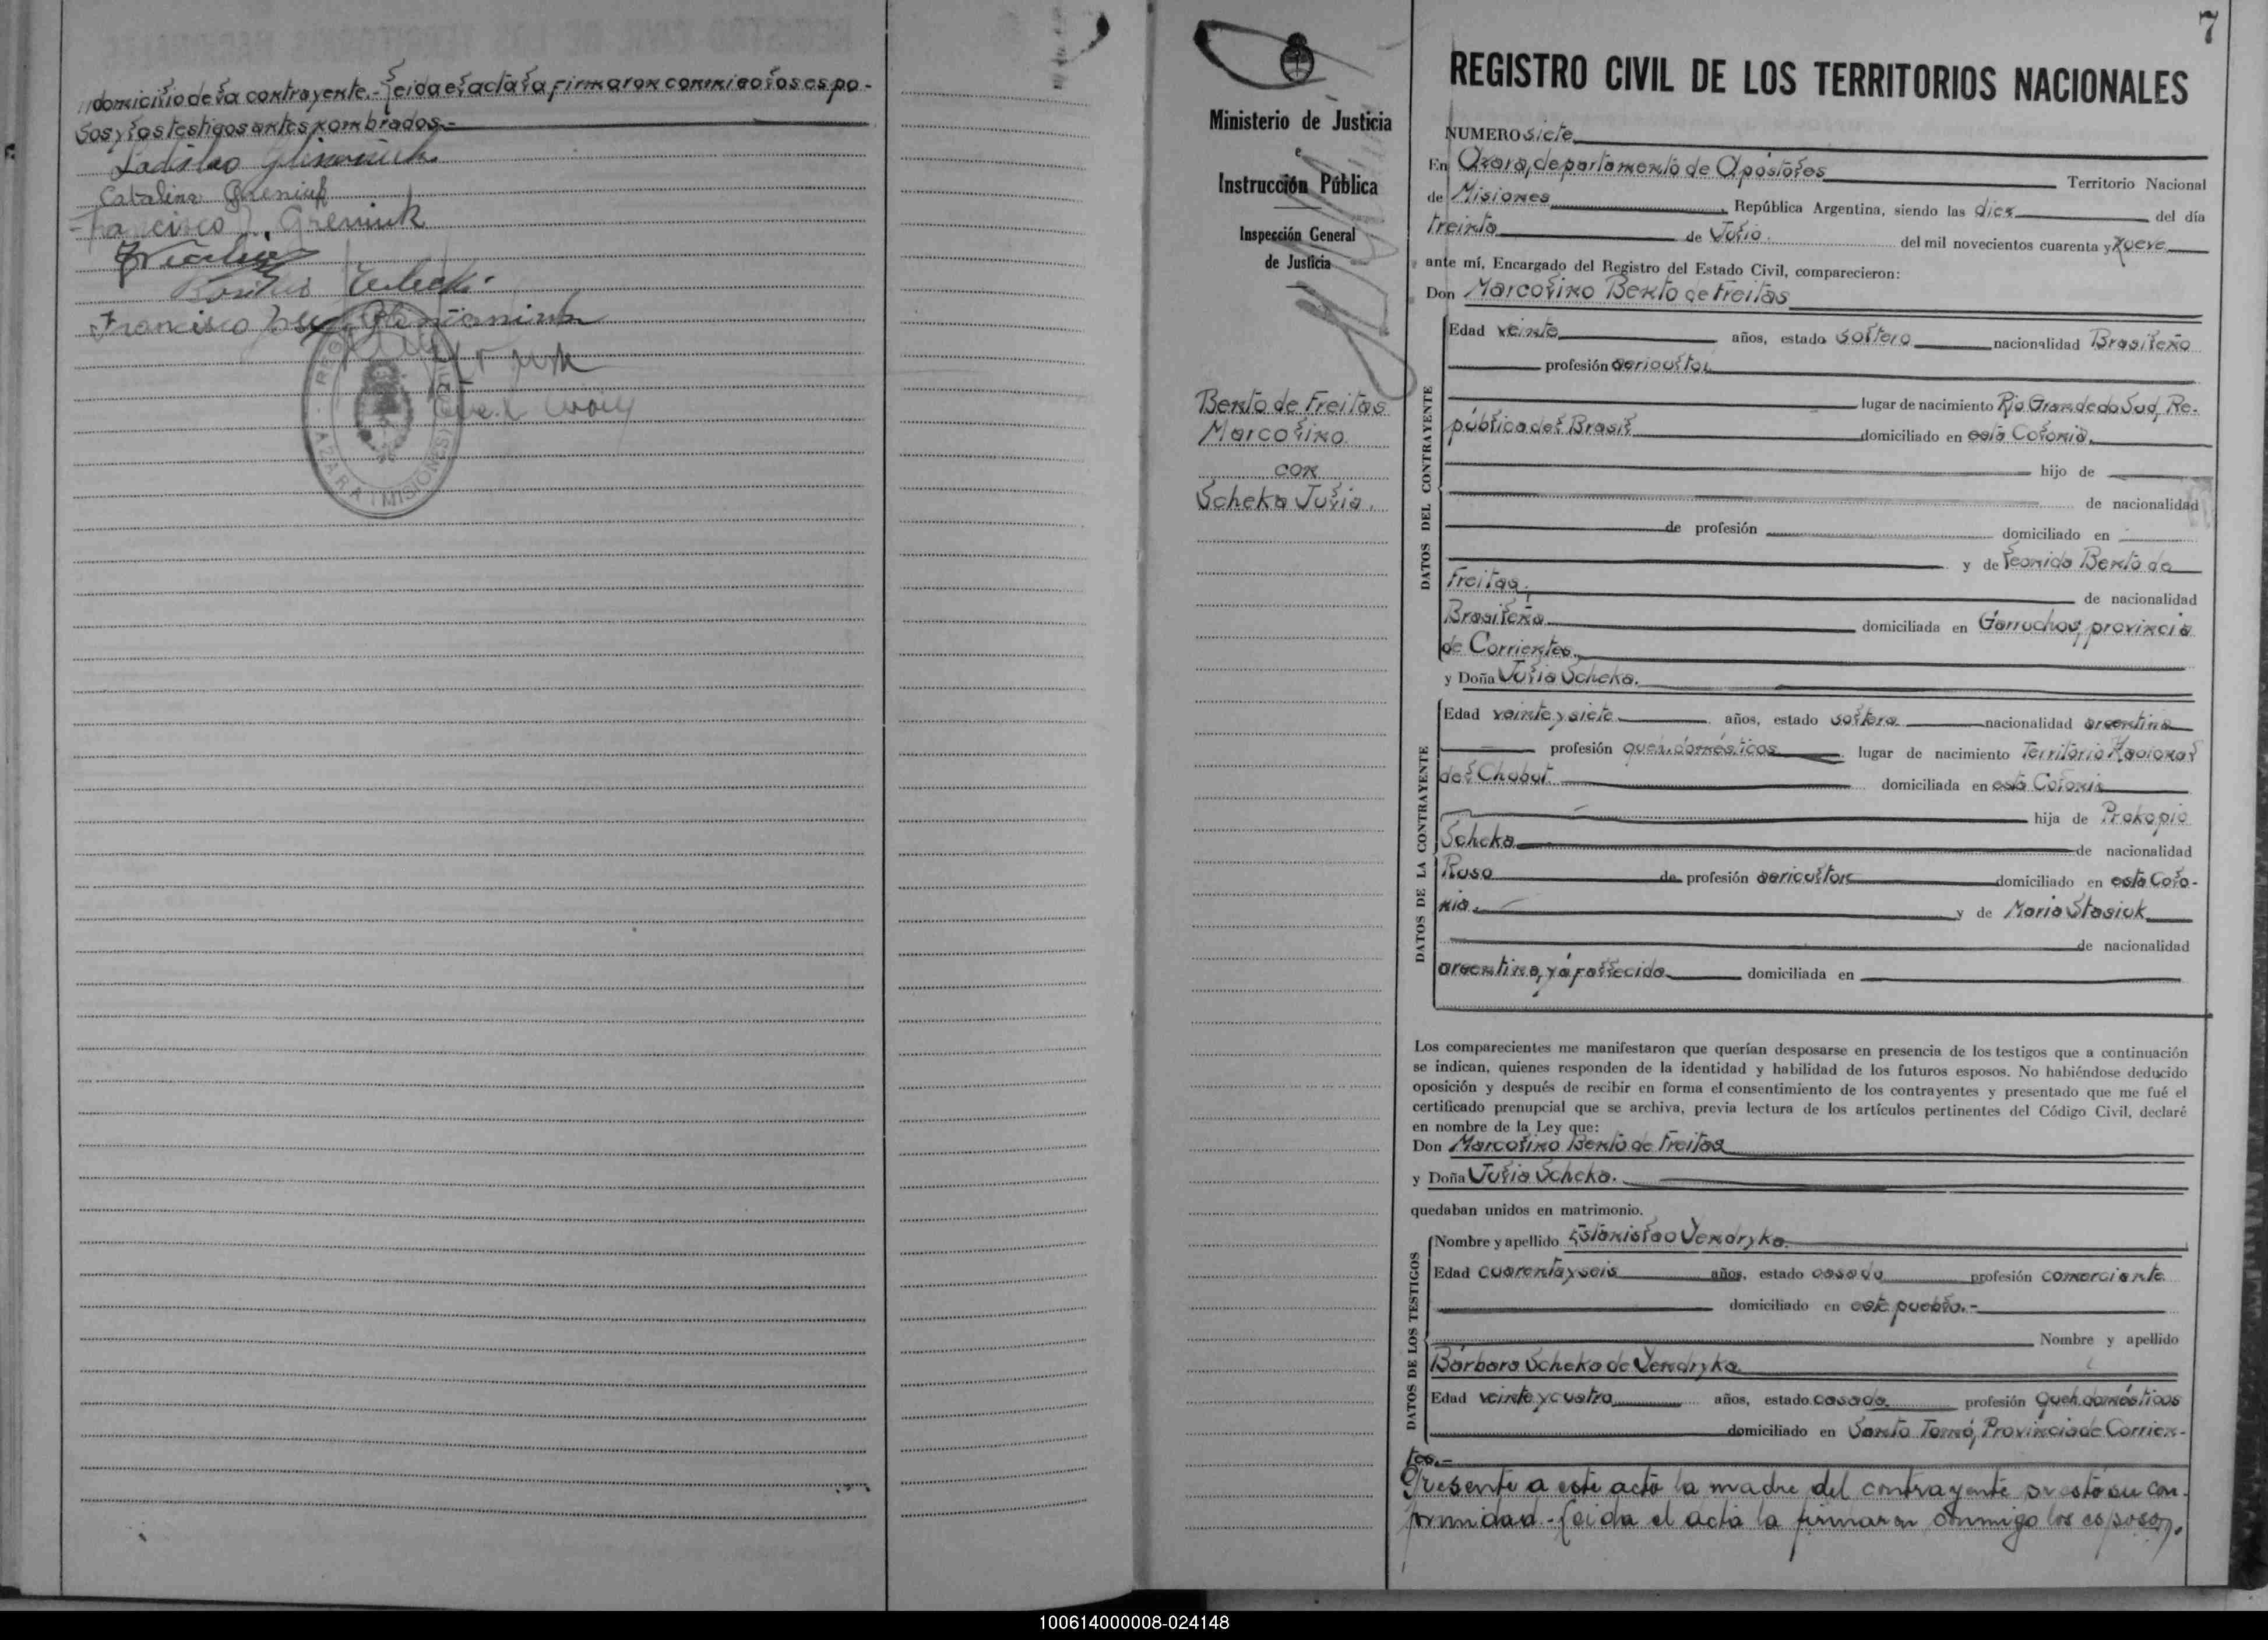 domicilio de la contrayente.- Leida el acta la firmaron conmigo los espo-
sos y los testigos antes nombrados.-
Ladislao
Catalina Greniuk
Francisco Greniuk
Francisco José
REG
AZARA (MISIONES)
7
REGISTRO CIVIL DE LOS TERRITORIOS NACIONALES
Ministerio de Justicia
e
Instrucción Pública
Inspección General
de Justicia
Bento de Freitas
Marcolino
con
Scheka Julia.
NUMERO siete
En Azara, departamento de Apóstoles Territorio Nacional
de Misiones República Argentina, siendo las diez del día
treinta de Julio del mil novecientos cuarenta y nueve
ante mí, Encargado del Registro del Estado Civil, comparecieron:
Don Marcolino Bento de Freitas
DATOS DEL CONTRAYENTE
Edad veinte años, estado soltero nacionalidad Brasileño
profesión agricultor
lugar de nacimiento Rio Grande do Sud, Re-
pública del Brasil domiciliado en esta Colonia,
hijo de
de nacionalidad
de profesión domiciliado en
y de Leonida Bento de
Freitas, de nacionalidad
Brasileña domiciliada en Garruchos, provincia
de Corrientes,
y Doña Julia Scheka.
DATOS DE LA CONTRAYENTE
Edad veinte y siete años, estado soltera nacionalidad argentina
profesión queh. domésticos lugar de nacimiento Territorio Nacional
del Chubut domiciliada en esta Colonia
hija de Prokopio
Scheka de nacionalidad
Ruso de profesión agricultor domiciliado en esta Colo-
nia. y de Maria Stasiuk
de nacionalidad
argentina, ya fallecida domiciliada en
Los comparecientes me manifestaron que querían desposarse en presencia de los testigos que a continuación
se indican, quienes responden de la identidad y habilidad de los futuros esposos. No habiéndose deducido
oposición y después de recibir en forma el consentimiento de los contrayentes y presentado que me fué el
certificado prenupcial que se archiva, previa lectura de los artículos pertinentes del Código Civil, declaré
en nombre de la Ley que:
Don Marcolino Bento de Freitas
y Doña Julia Scheka.
quedaban unidos en matrimonio.
DATOS DE LOS TESTIGOS
Nombre y apellido Estanislao Yendryka
Edad cuarenta y seis años, estado casado profesión comerciante
domiciliado en este pueblo.-
Nombre y apellido
Bárbara Scheka de Yendryka
Edad veinte y cuatro años, estado casada profesión queh. domésticos
domiciliado en Santo Tomé, Provincia de Corrien-
tes.-
Presente a este acto la madre del contrayente prestó su con-
formidad.- Leida el acta la firmaron conmigo los esposos,
100614000008-024148